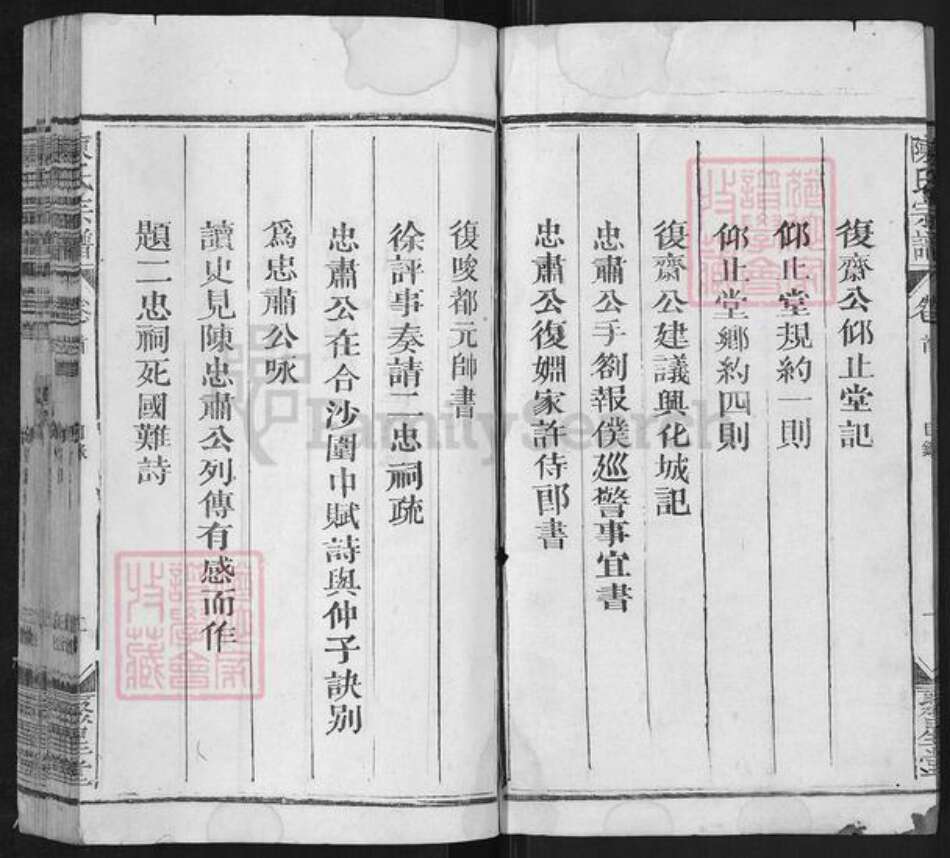 陳氏宗譜
卷首
目錄
復齋公仰止堂記
仰止堂規約一則
仰止堂鄉約四則
復齋公建議興化城記
忠肅公于劉報僕廵警事宜書
忠肅公復婣家許侍郎書
復唆都元帥書
徐評事奏請二忠祠疏
忠肅公在合沙圍中賦詩與仲子訣别
為忠肅公咏
讀史見陳忠肅公列傳有感而作
題二忠祠死國難詩
陳氏宗譜
卷首
目錄
FamilySearch
收藏